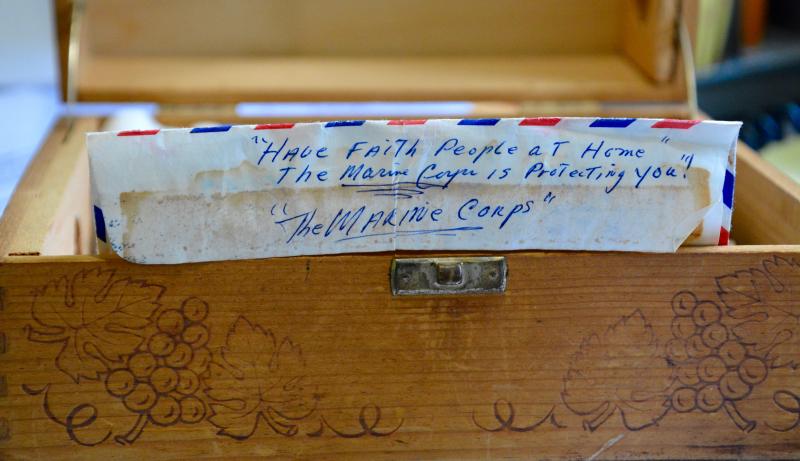 "Have Faith People at Home"
The Marine Corps is Protecting you"!
"The Marine Corps"